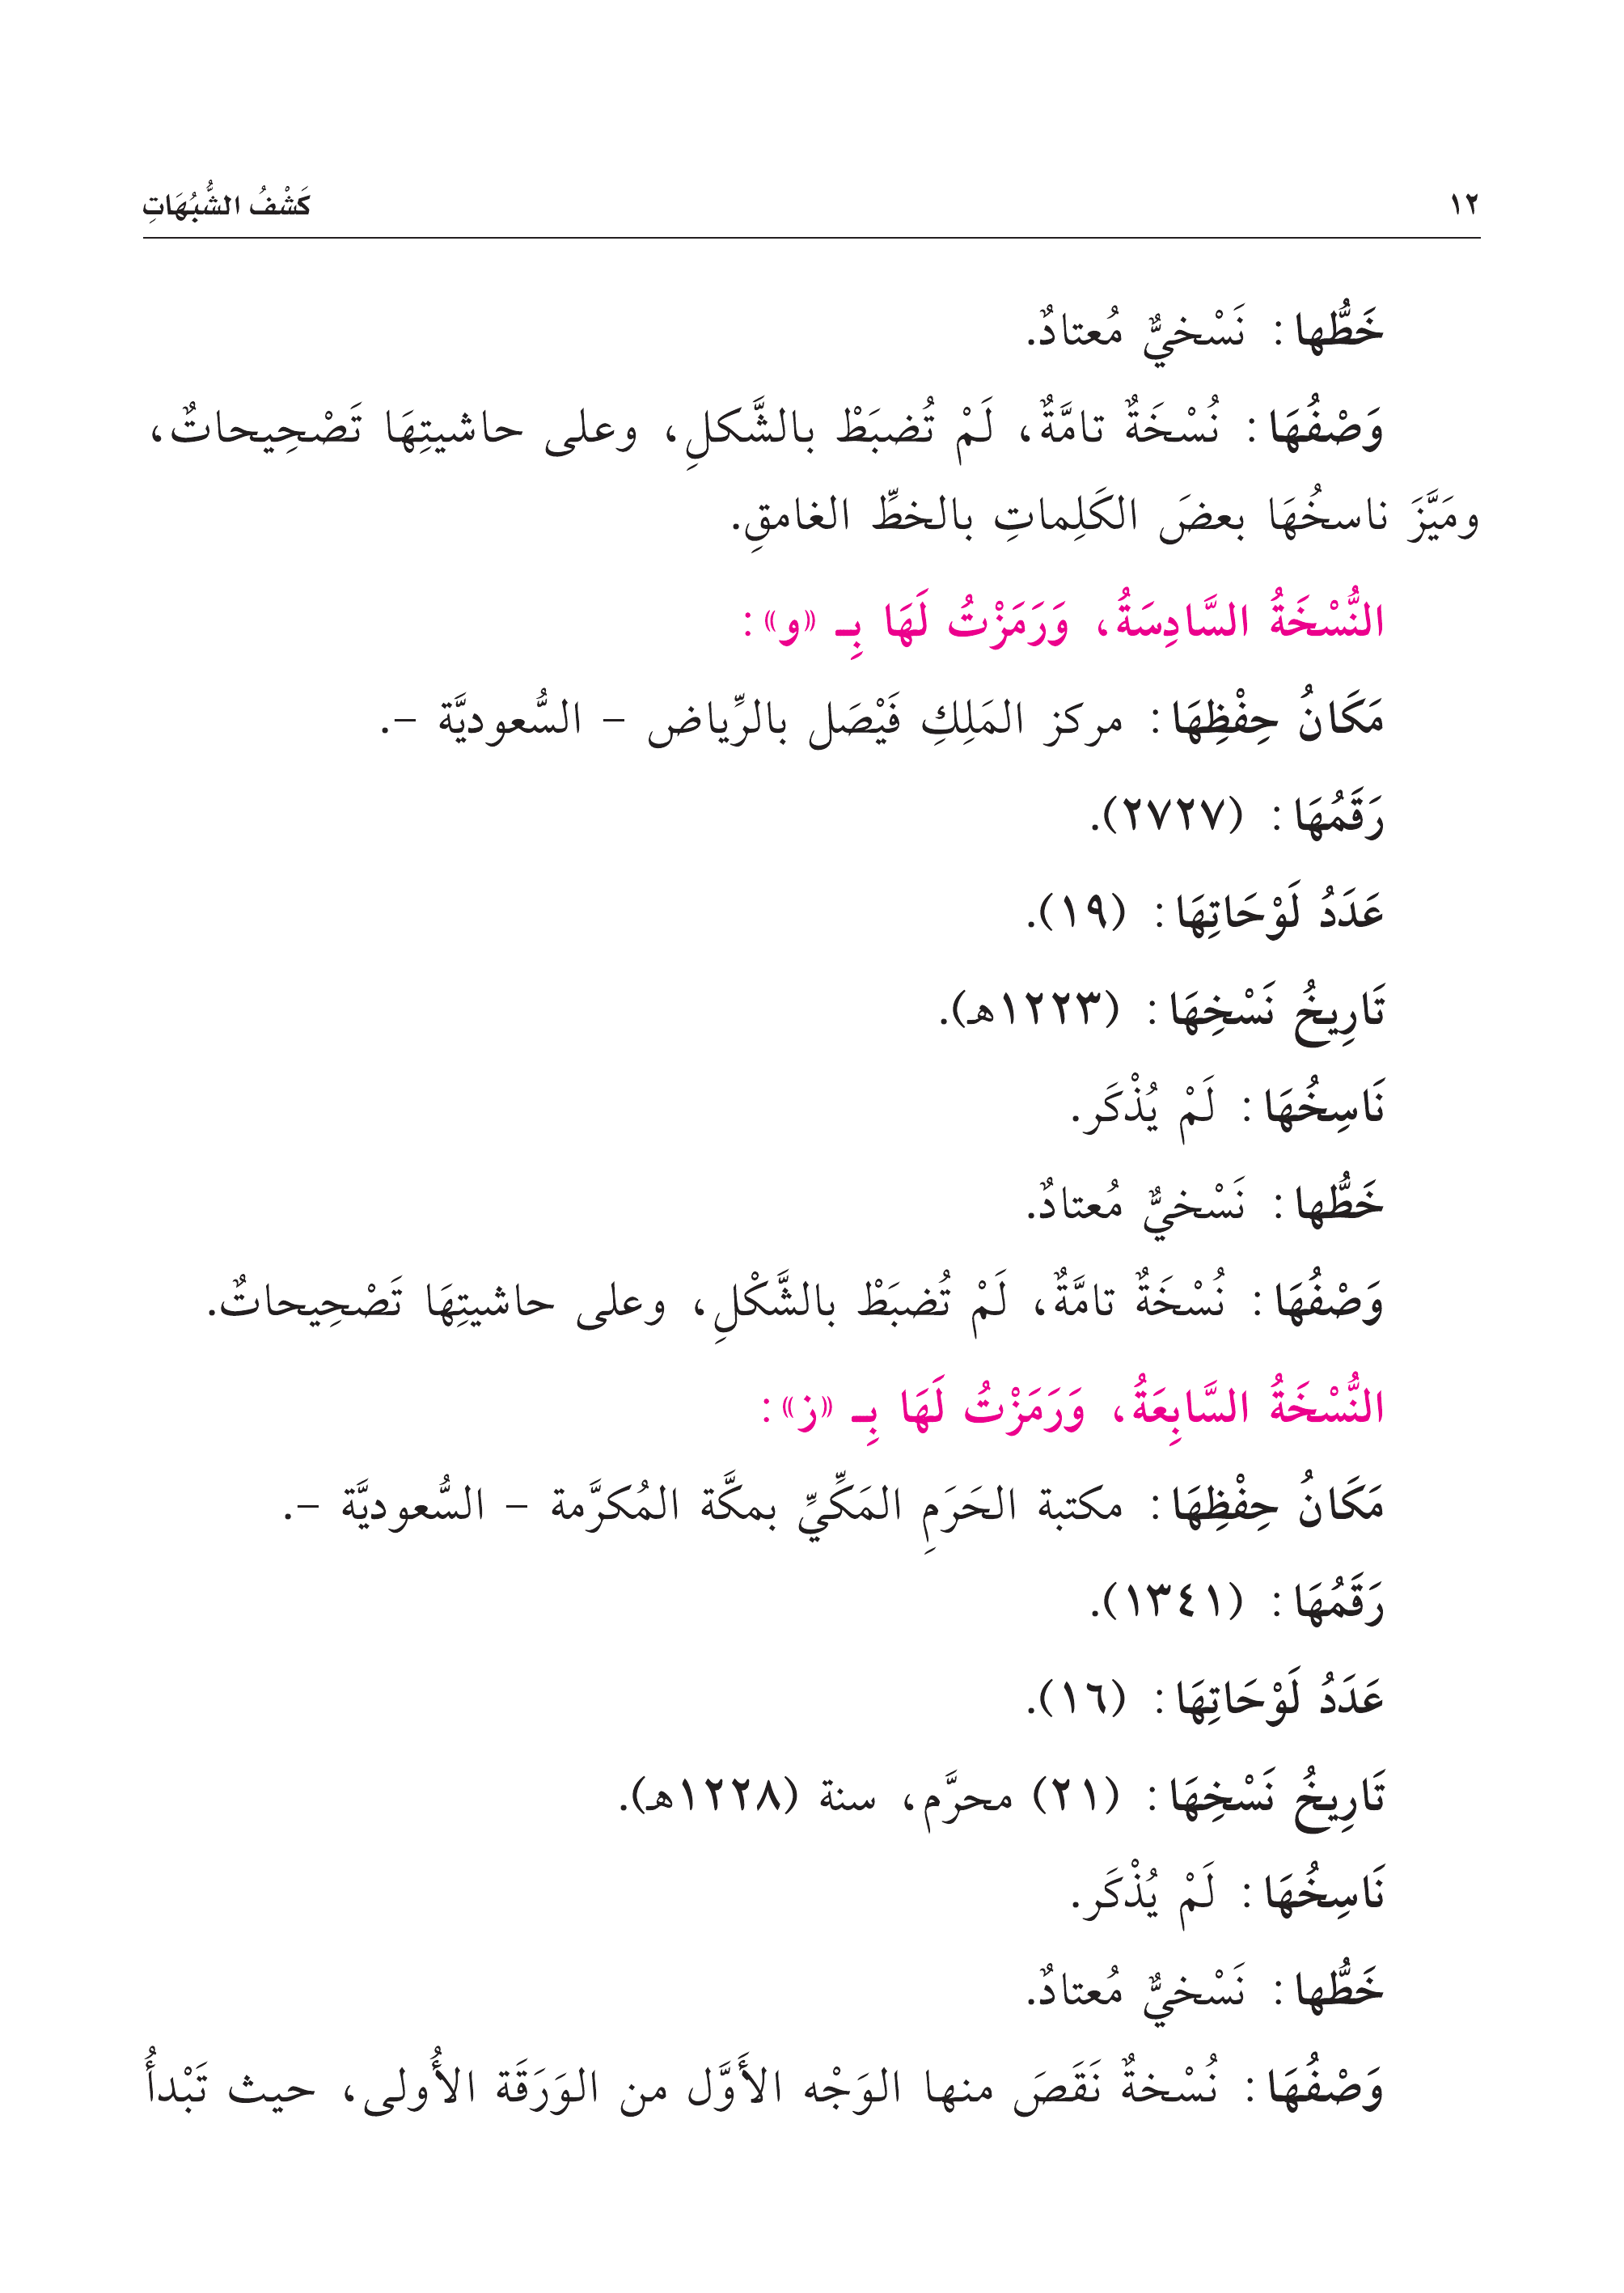 ١٢ كَشْفُ الشُّبُهَاتِ
خَطُّها: نَسْخيٌّ مُعتادٌ.
وَصْفُهَا: نُسْخَةٌ تامَّةٌ، لَمْ تُضبَطْ بالشَّكلِ، وعلى حاشيتِهَا تَصْحِيحاتٌ،
ومَيَّزَ ناسخُهَا بعضَ الكَلِماتِ بالخطِّ الغامقِ.
النُّسْخَةُ السَّادِسَةُ، وَرَمَزْتُ لَهَا بِـ «و»:
مَكَانُ حِفْظِهَا: مركز المَلِكِ فَيْصَل بالرِّياض – السُّعوديَّة –.
رَقَمُهَا: (٢٧٢٧).
عَدَدُ لَوْحَاتِهَا: (١٩).
تَارِيخُ نَسْخِهَا: (١٢٢٣هـ).
نَاسِخُهَا: لَمْ يُذْكَر.
خَطُّها: نَسْخيٌّ مُعتادٌ.
وَصْفُهَا: نُسْخَةٌ تامَّةٌ، لَمْ تُضبَطْ بالشَّكْلِ، وعلى حاشيتِهَا تَصْحِيحاتٌ.
النُّسْخَةُ السَّابِعَةُ، وَرَمَزْتُ لَهَا بِـ «ز»:
مَكَانُ حِفْظِهَا: مكتبة الحَرَمِ المَكِّيِّ بمكَّة المُكرَّمة – السُّعوديَّة –.
رَقَمُهَا: (١٣٤١).
عَدَدُ لَوْحَاتِهَا: (١٦).
تَارِيخُ نَسْخِهَا: (٢١) محرَّم، سنة (١٢٢٨هـ).
نَاسِخُهَا: لَمْ يُذْكَر.
خَطُّها: نَسْخيٌّ مُعتادٌ.
وَصْفُهَا: نُسْخةٌ نَقَصَ منها الوَجْه الأَوَّل من الوَرَقَة الأُولى، حيث تَبْدأُ